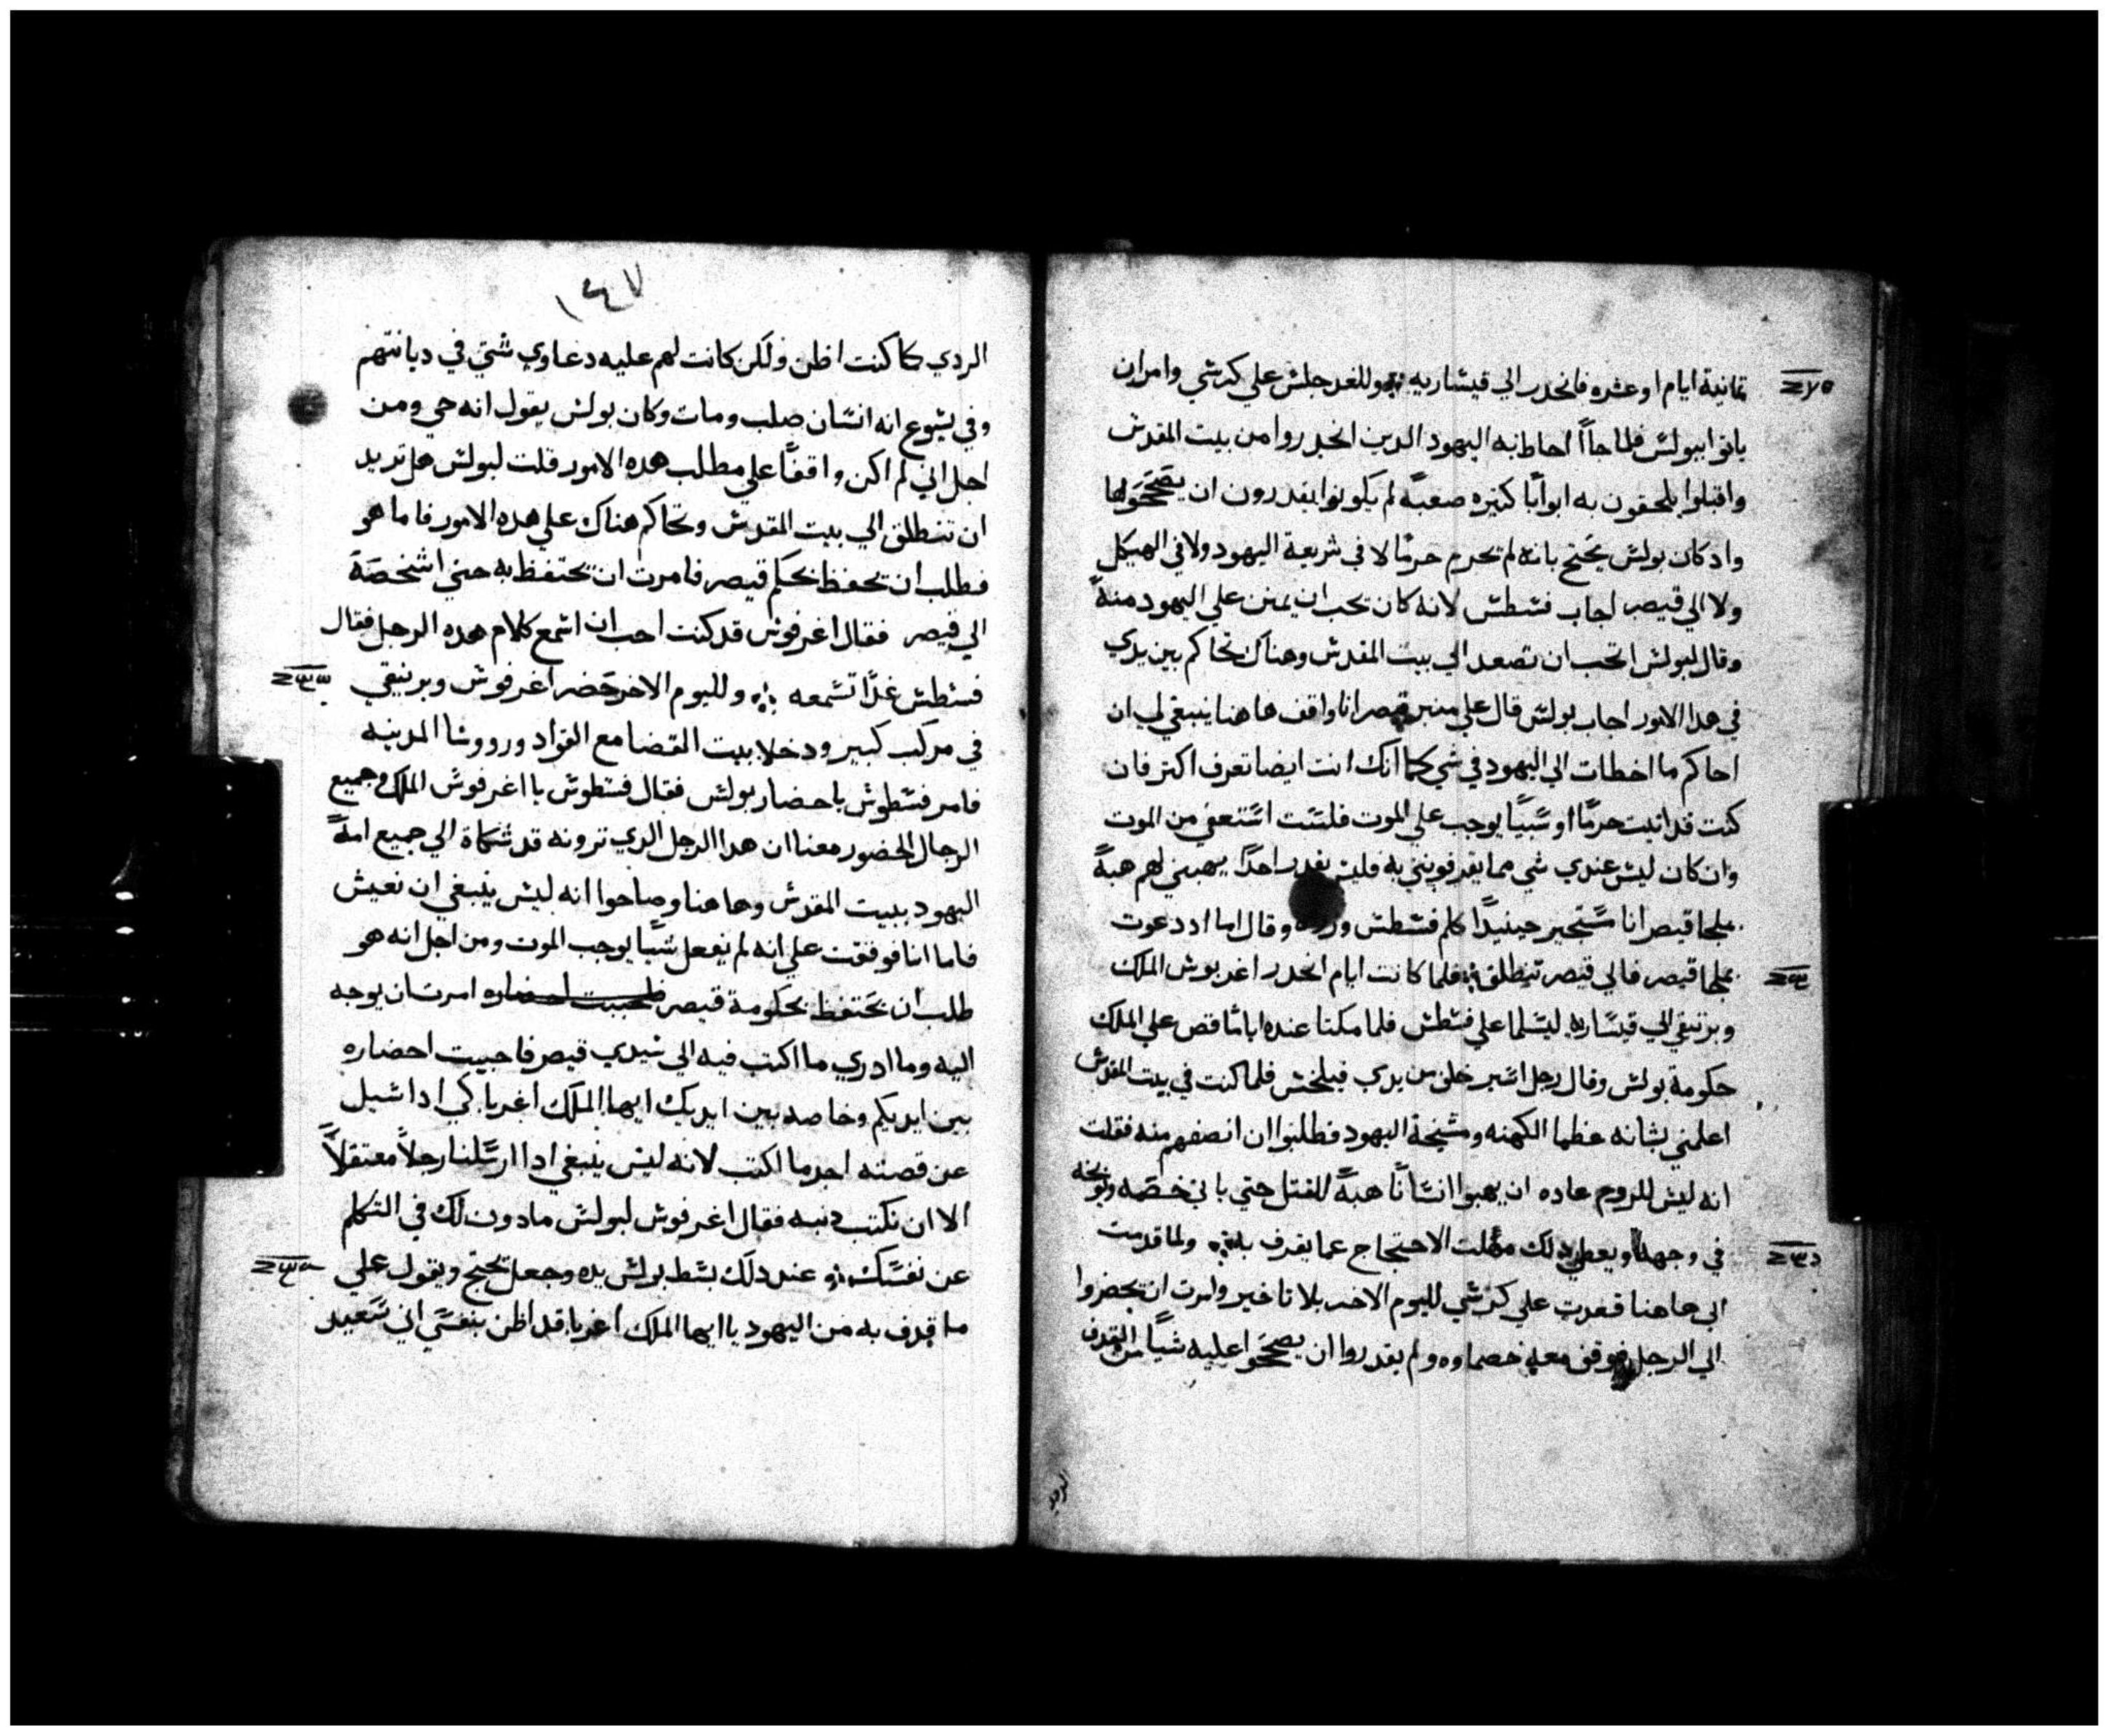 ثمانية ايام او عشره فانحدر الي قيسّاريه ⁘ وللغد جلسّ علي كرسّي وامر ان
ياتوا ببولسّ فلما جاآ احاط به اليهود الدين انحدروا من بيت المقدسّ
واقبلوا يلحقون به ابوابًا كثيره صعبه لم يكونوا يقدرون ان يصححوها
واد كان بولسّ يحتج بانه لم يجرم جرمًا لا في شريعة اليهود ولا في الهيكل
ولا الي قيصر اجاب فسّطسّ لانه كان يحب ان يمنن علي اليهود منةً
وقال لبولسّ اتحب ان تصعد الي بيت المقدسّ وهناك تحاكم بين يدي
في هدا الامور اجاب بولسّ قال علي منبر قيصر انا واقف هاهنا ينبغي لي ان
احاكم ما اخطات الي اليهود في شي كما انك انت ايضا تعرف اكتر فان
كنت قد اتيت جرمًا او شيًا يوجب علي الموت فلسّت اسّتعفي من الموت
وان كان ليسّ عندي شي مما يقرفونني به فليسّ يقدر احدًا يهبني لهم هبةً
بملجا قيصر انا مسّتجير حينيدًا كلم فسّطسّ وقال اما اد دعوت
بملجا قيصر فالي قيصر تنطلق ⁘ فلما كانت ايام انحدر اغربوسّ الملك
وبرنيقي الي قيسّاريه ليسّلما علي فسّطسّ فلما مكتا عنده اياما قص علي الملك
حكومة بولسّ وقال رجل اسّير خلق من يدي فيلخسّ فلما كنت في بيت المقدسّ
اعلمني بشانه عظما الكهنه ومشيخة اليهود فطلبوا ان انصفهم منه فقلت
انه ليسّ للروم عاده ان يهبوا انسّانًا هبةً للقتل حتي ياتي خصمه ويوبخه
في وجهه ويعطي دلك مهلت الاحتجاج عما يقرف به ⁘ ولما قدمت
الي هاهنا قعدت علي كرسّي لليوم الاخر بلا تاخير وامرت ان يحضروا
الي الرجل فوقف معه خصماوه ولم يقدروا ان يصححوا عليه شياً من القدف
الردي
١٤٧
الردي كما كنت اظن ولكن كانت لهم عليه دعاوي شتي في ديانتهم
وفي يسّوع انه انسّان صلب ومات وكان بولسّ يقول انه حي ومن
اجل اني لم اكن واقفًا علي مطلب هده الامور قلت لبولسّ هل تريد
ان تنطلق الي بيت المقدسّ وتحاكم هناك علي هده الامور فاما هو
فطلب ان يحفظ بحكم قيصر فامرت ان يحتفظ به حتي اشخصة
الي قيصر فقال اغرفوسّ قد كنت احب ان اسّمع كلام هده الرجل فقال
فسّطسّ غدًا تسّمعه ⁘ ولليوم الاخر حضر اغرفوسّ وبرنيقي
في مركب كبير ودخلا بيت القضا مع القواد ورووسّا المدينه
فامر فسّطوسّ باحضار بولسّ فقال فسّطوسّ يا اغرفوسّ الملك وجميع
الرجال الحضور معنا ان هدا الرجل الدي ترونه قد شكاة الي جميع امةً
اليهود ببيت المقدسّ وهاهنا وصاحوا انه ليسّ ينبغي ان نعيش
فاما انا فوقفت علي انه لم يفعل شيًا يوجب الموت ومن اجل انه هو
طلب ان يحتفظ بحكومة قيصر فاحببت احضاره امرت ان يوجه
اليه وما ادري ما اكتب فيه الي سّيدي قيصر فاحببت احضاره
بين ايديكم وخاصه بين ايديك ايها الملك اغرباكي ادا سّيل
عن قصته اجد ما اكتب لانه ليسّ ينبغي ادا ارسّلنا رجلاً معتقلاً
الا ان نكتب دنبه فقال اغرفوسّ لبولسّ مادون لك في التكلم
عن نفسّك ⁘ عند دلك بسّط بولسّ يده وجعل يحتج ويقول علي
ما قدف به من اليهود يا ايها الملك اغربا قد اظن بنفسّي اني سّعيد